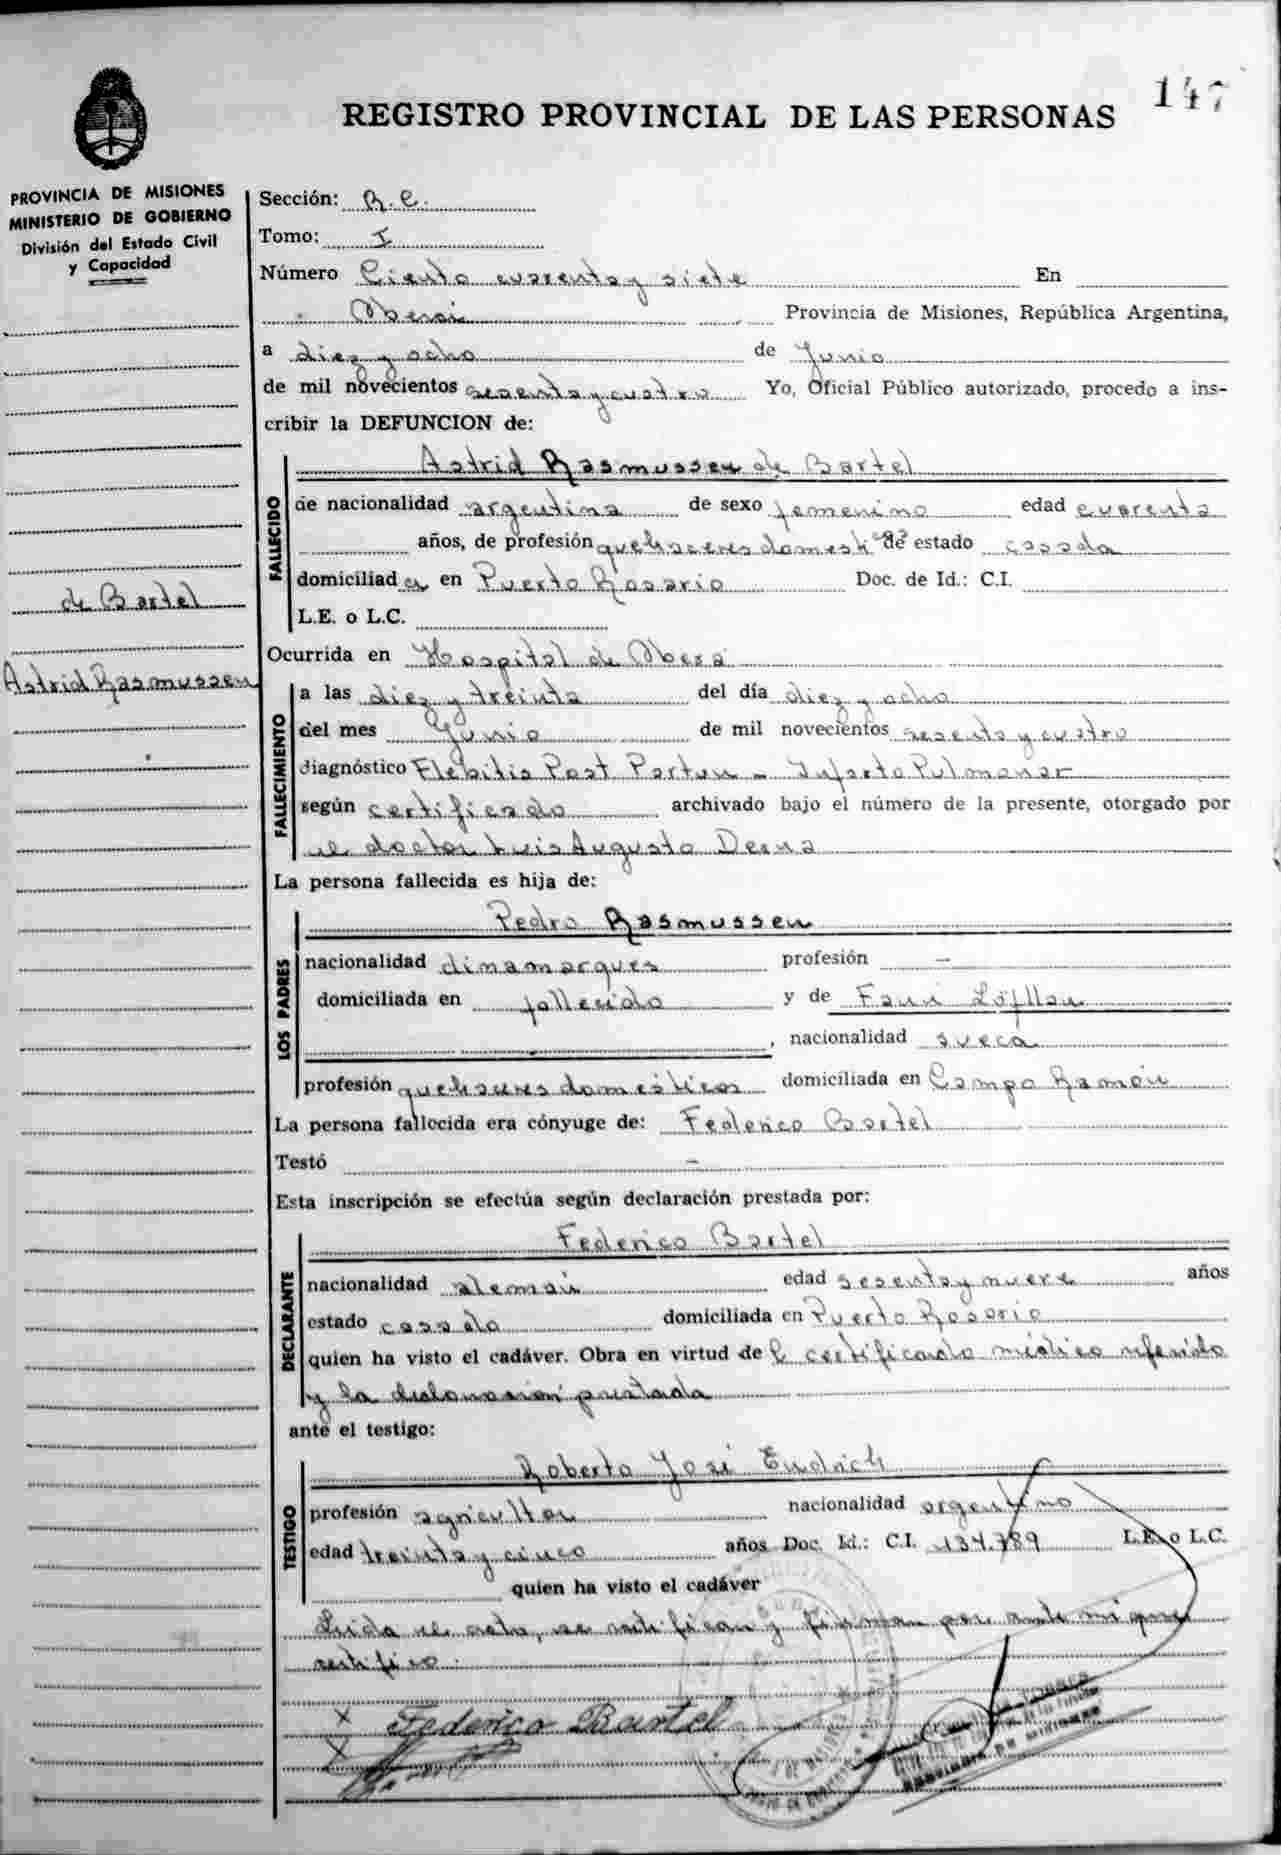 147
REGISTRO PROVINCIAL DE LAS PERSONAS
PROVINCIA DE MISIONES
MINISTERIO DE GOBIERNO
División del Estado Civil
y Capacidad
de Bartel
Astrid Rasmussen
Sección: R. C.
Tomo: I
Número Ciento cuarenta y siete En
Oberá Provincia de Misiones, República Argentina,
a diez y ocho de Junio
de mil novecientos sesenta y cuatro Yo, Oficial Público autorizado, procedo a ins-
cribir la DEFUNCION de:
Astrid Rasmussen de Bartel
FALLECIDO
de nacionalidad argentina de sexo femenino edad cuarenta
años, de profesión quehaceres domest cos de estado casada
domiciliad a en Puerto Rosario Doc. de Id.: C.I.
L.E. o L.C.
Ocurrida en Hospital de Oberá
FALLECIMIENTO
a las diez y treinta del día diez y ocho
del mes Junio de mil novecientos sesenta y cuatro
diagnóstico Flebitis Post Partum - Infarto Pulmonar
según certificado archivado bajo el número de la presente, otorgado por
el doctor Luis Augusto
La persona fallecida es hija de:
Pedro Rasmussen
LOS PADRES
nacionalidad dinamarques profesión -
domiciliada en fallecido y de
, nacionalidad sueca
profesión quehaceres domesticos domiciliada en Campo Ramón
La persona fallecida era cónyuge de: Federico Bartel
Testó -
Esta inscripción se efectúa según declaración prestada por:
Federico Bartel
DECLARANTE
nacionalidad alemán edad sesenta y nueve años
estado casado domiciliada en Puerto Rosario
quien ha visto el cadáver. Obra en virtud de l certificado médico referido
y la declaración prestada
ante el testigo:
Roberto José Endrich
TESTIGO
profesión agricultor nacionalidad argentino
edad treinta y cinco años Doc. Id.: C.I. 134.789 L.E. o L.C.
quien ha visto el cadáver
Leida el acta, se ratifican y firman por ante mí que
certifico.
x Federico Bartel
x
PROVINCIA DE MISIONES